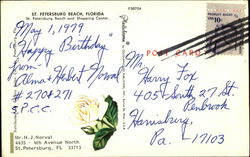 ST. PETERSBURG BEACH, FLORIDA
St. Petersburg Beach and Shopping Center.
May 1, 1979
"Happy Birthday"
from
Alma & Hebert Norval
# 270 & 271
S.P.C.C.
Mr. H. J. Norval
4935 - 4th Avenue North
St. Petersburg, FL 33713
P30704
POST CARD
Mr.
Harry Fox
405 South 27 St.
Penbrook
Harrisburg,
Pa. 17103